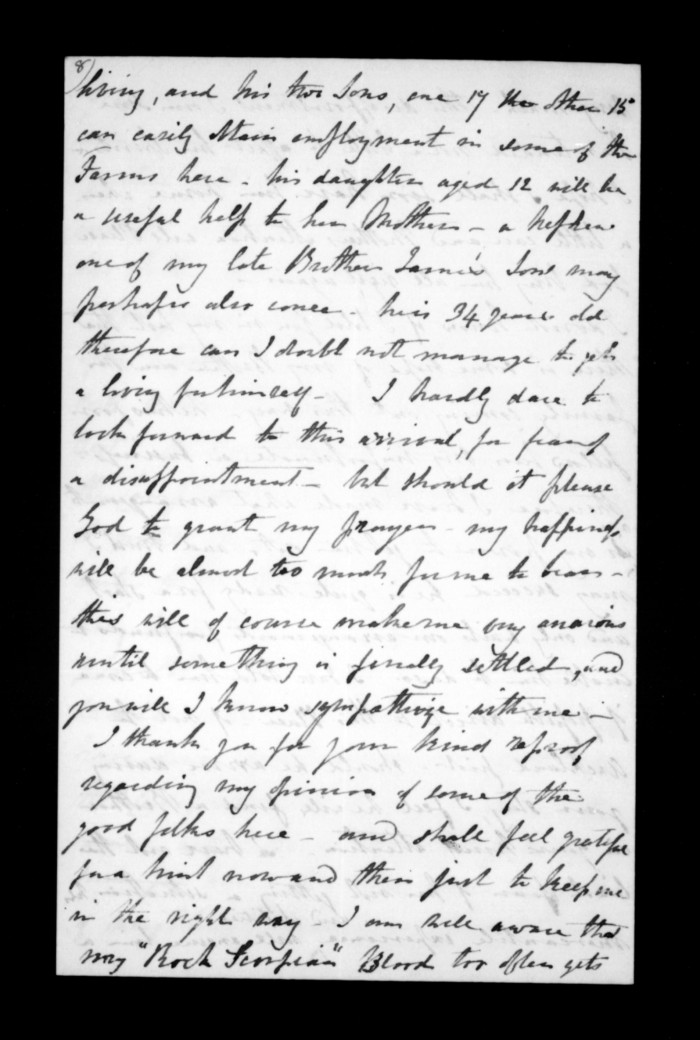 8)
living, and his two Sons, one 17 the other 15
can easily obtain employment in some of the
Farms here - his daughter aged 12 will be
a useful help to her Mother - a nephew
one of my late Brother James' Sons may
perhaps also come - he is 34 years old
therefore can I doubt not manage to get
a living for himself - I hardly dare to
look forward to this arrival, for fear of
a disappointment - but should it please
God to grant my prayer - my happiness
will be almost too much for me to bear -
this will of course make me very anxious
until something is finally settled, and
you will I know sympathize with me -
I thank you for your kind reproof
regarding my opinion of some of the
good folks here - and shall feel grateful
for a hint now and then just to keep me
in the right way - I am well aware that
my "Rock Scorpion" Blood too often gets